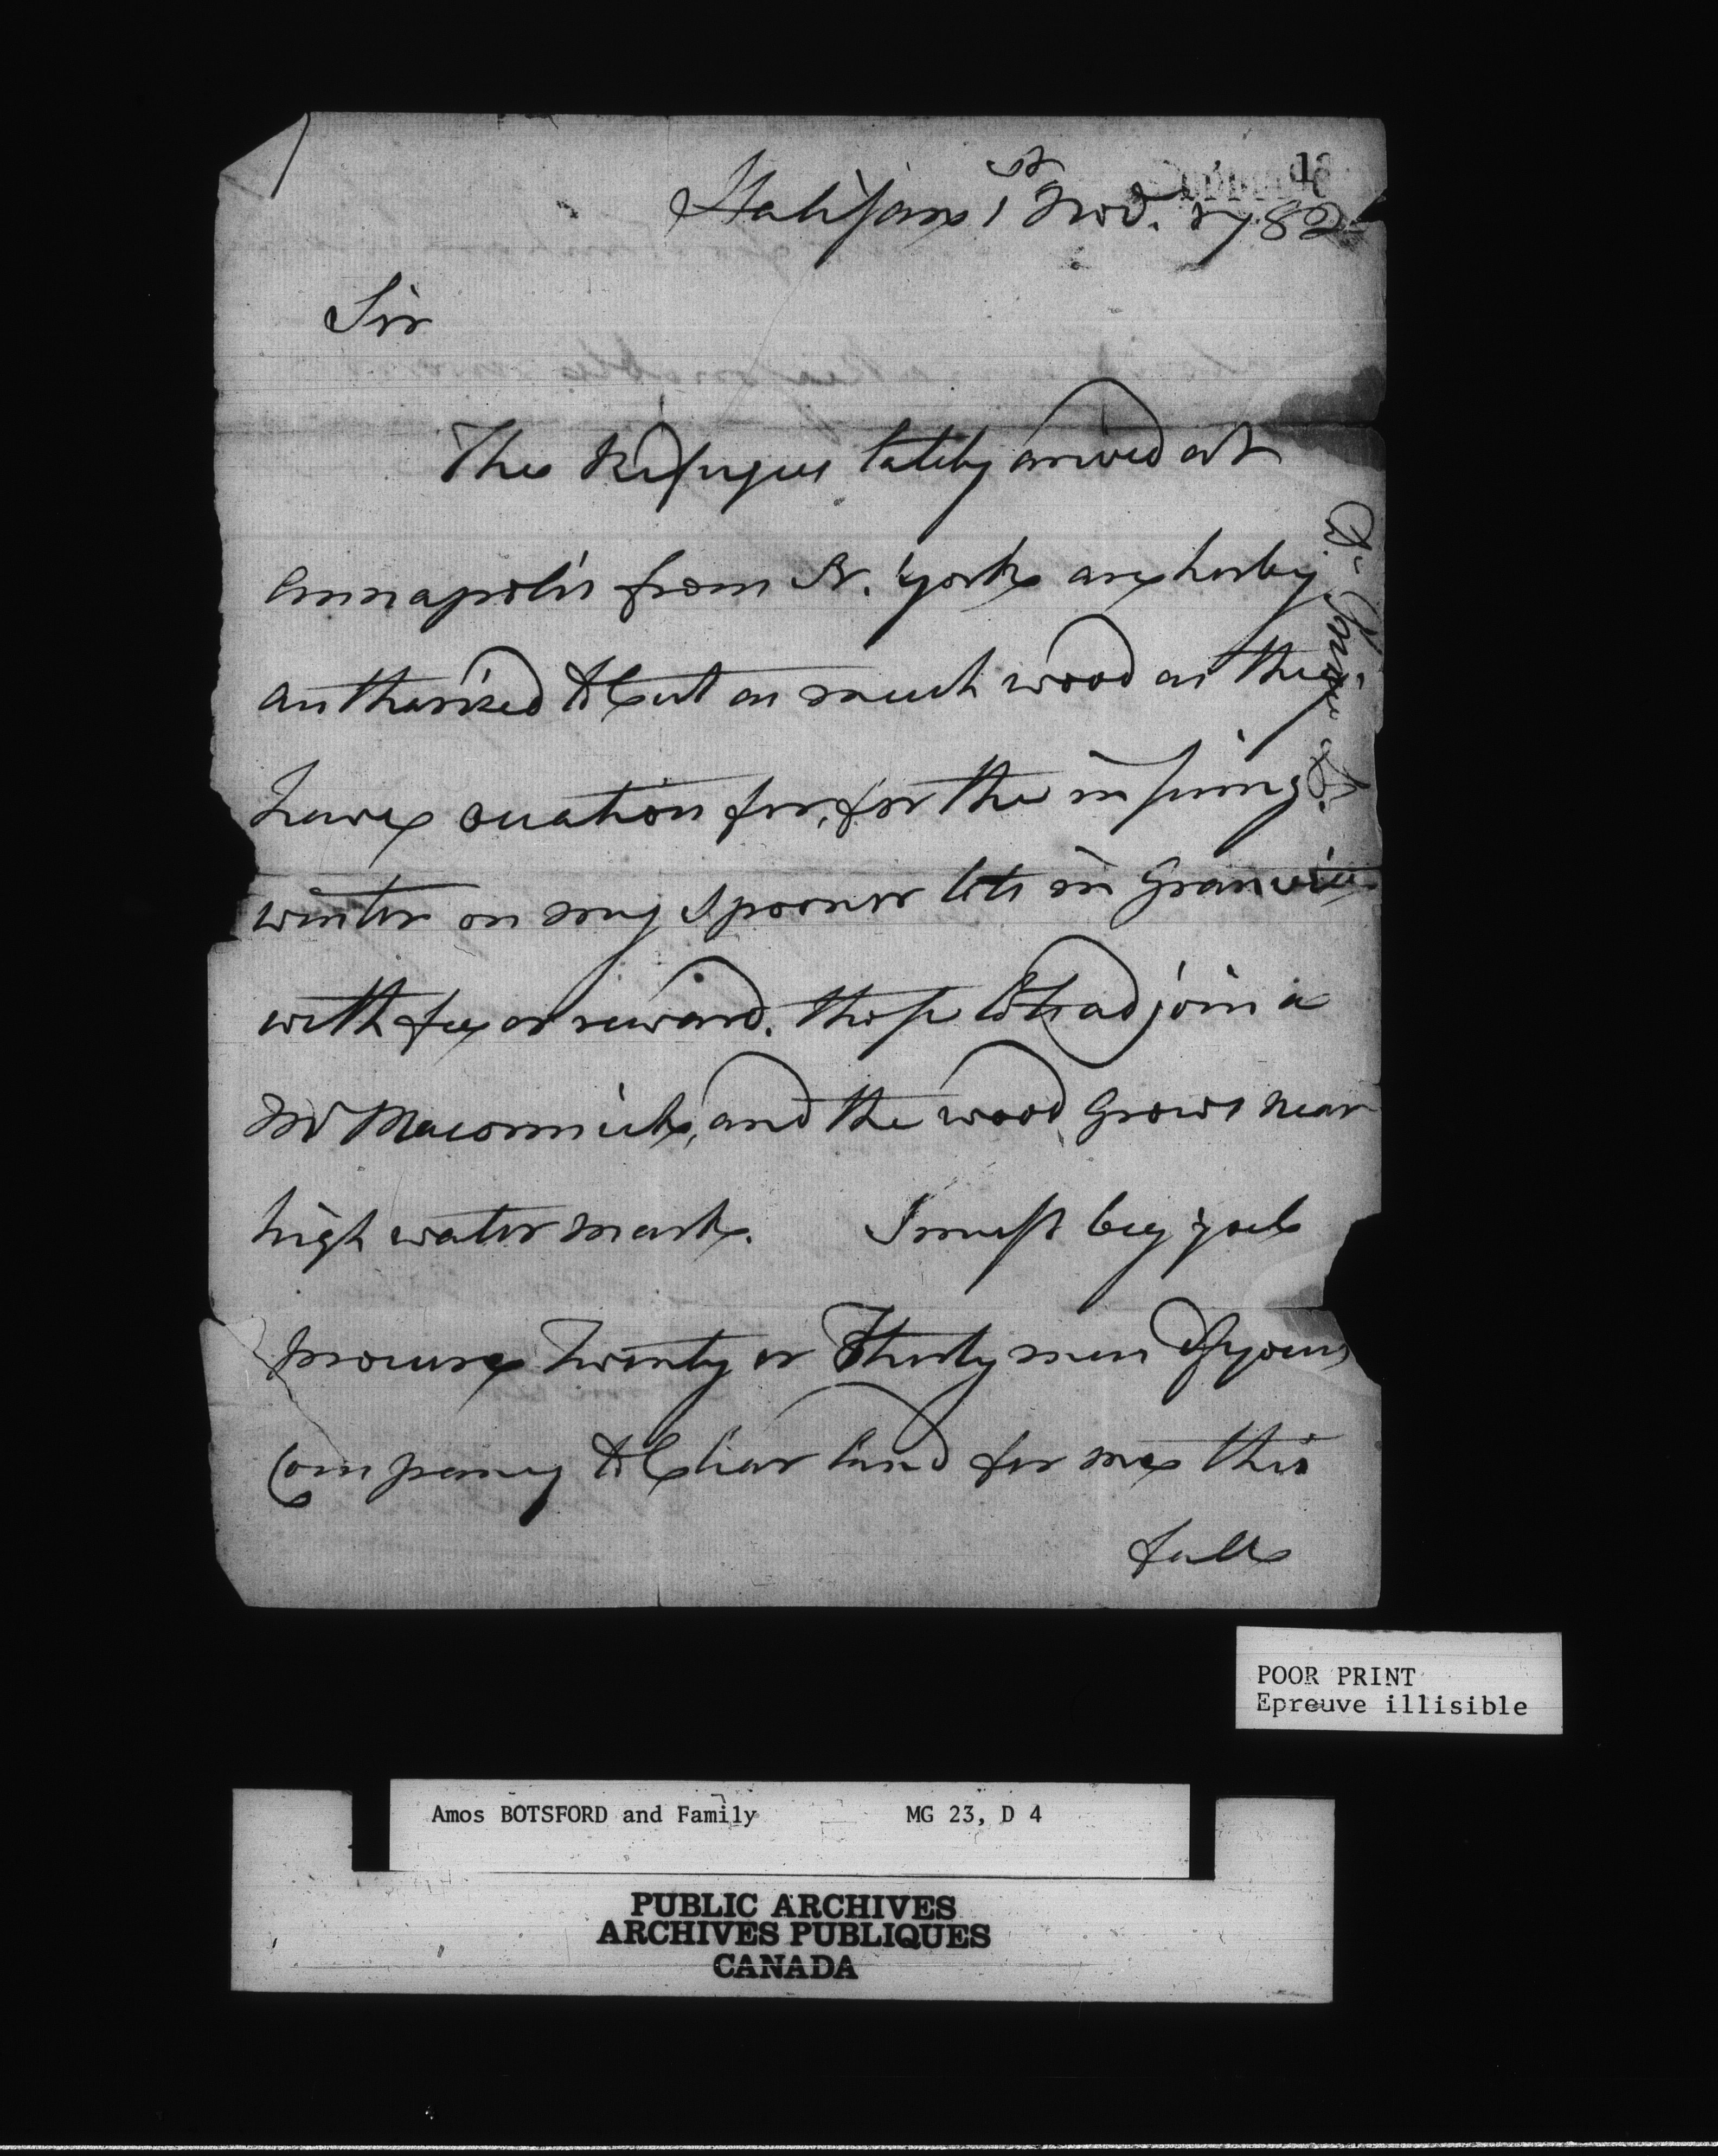 Halifax 1st Nov. 1782
Sir
The Refugees lately arived at
Annapolis from N. York are herby
authorised to Cut as much wood as they
have occation for, for the insuing
winter on my Spooner lots in Granville
with fee or reward. those lots adjoin a
Mr Macormick, and the wood grows near
high water mark. I must beg youl
procure Twenty or Thirty men Of your
Company to Clear land for me this
fall
POOR PRINT
Epreuve illisible
Amos BOTSFORD and Family MG 23, D 4
PUBLIC ARCHIVES
ARCHIVES PUBLIQUES
CANADA